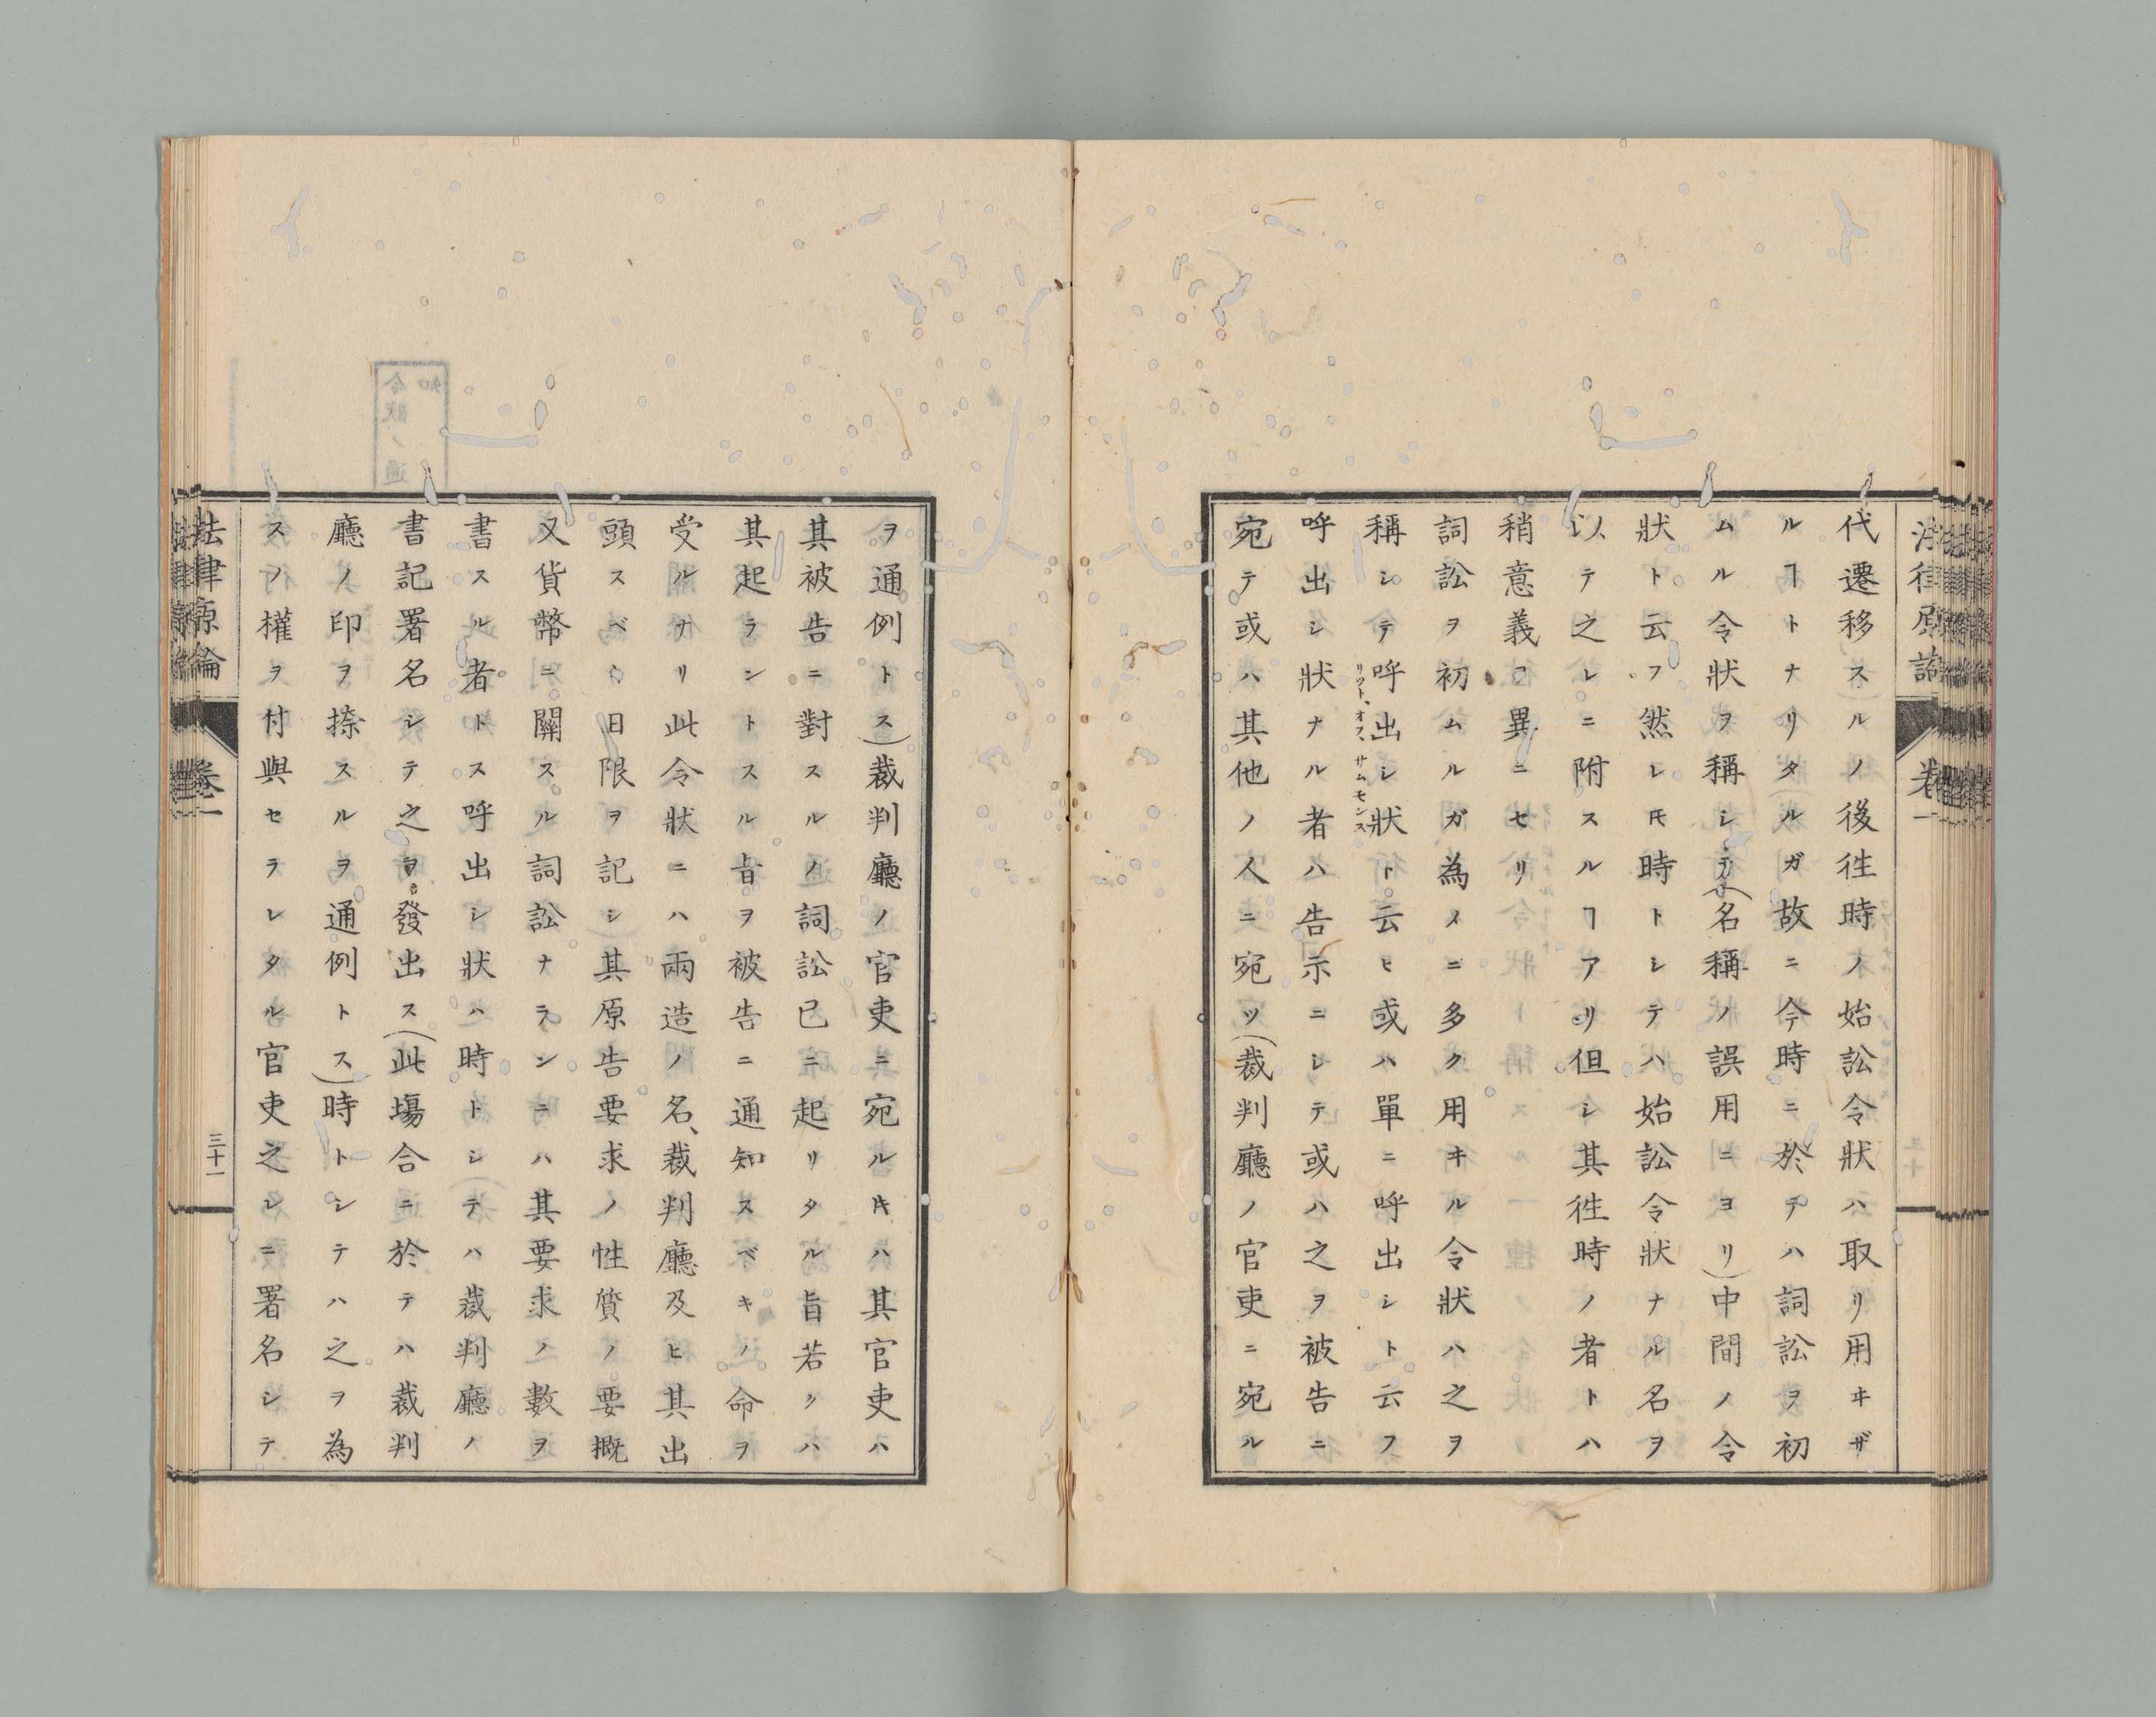 代遷移スルノ後徃時ノ始訟令狀ハ取リ用ヰザ
ルヿトナリタルガ故ニ今時ニ於テハ詞訟ヲ初
ムル令狀ヲ稱シテ(名稱ノ誤用ニヨリ)中間ノ令
狀ト云フ然レ𪜈時トシテハ始訟令狀ナル名ヲ
以テ之レニ附スルヿアリ但シ其徃時ノ者トハ
稍意義ヲ異ニセリ
詞訟ヲ初ムルガ為メニ多ク用ヰル令狀ハ之ヲ
稱シテ呼出シ狀ト云ヒ或ハ單ニ呼出シト云フ
リツト、オフ、サムモンス
呼出シ狀ナル者ハ告示ニシテ或ハ之ヲ被告ニ
宛テ或ハ其他ノ人ニ宛ツ(裁判廳ノ官吏ニ宛ル
法律原論 卷一
ヲ通例トス)裁判廳ノ官吏ニ宛ル𪜈ハ其官吏ハ
其被告ニ對スルノ詞訟已ニ起リタル旨若クハ
其起ラントスル旨ヲ被告ニ通知スベキノ命ヲ
受ルナリ此令狀ニハ兩造ノ名、裁判廳及ヒ其出
頭スベキ日限ヲ記シ其原告要求ノ性質ノ要概
又貨幣ニ關スル詞訟ナランニハ其要求ノ數ヲ
書スル者トス呼出シ狀ハ時トシテハ裁判廳ノ
書記署名シテ之ヲ發出ス(此塲合ニ於テハ裁判
廳ノ印ヲ捺スルヲ通例トス)時トシテハ之ヲ為
スノ權ヲ付與セラレタル官吏之レニ署名シテ
法律原論 卷一 三十一